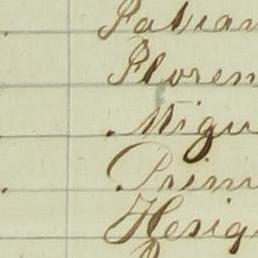 Fabian
Floren
Migu
Prim
Hesig